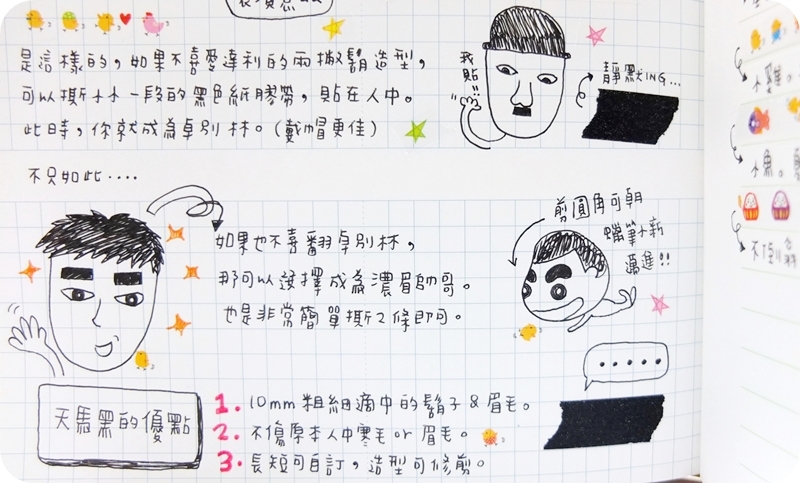 是這樣的，如果不喜愛達利的兩撇鬍造型，
可以撕大大一段的黑色紙膠帶，貼在人中。
此時，你就成為卓別林。(戴帽更佳)
我貼!!
靜默ING...
不只如此....
如果也不喜翻卓別林，
那可以選擇成為濃眉帥哥。
也是非常簡單撕2條即可。
剪圓角可朝
蠟筆小新
邁進!!
天馬黑的優點
1. 10mm粗細適中的鬍子&眉毛。
2. 不傷原本人中寒毛or眉毛。
3. 長短可自訂，造型可修剪。
小雞。
小魚。
不倒翁